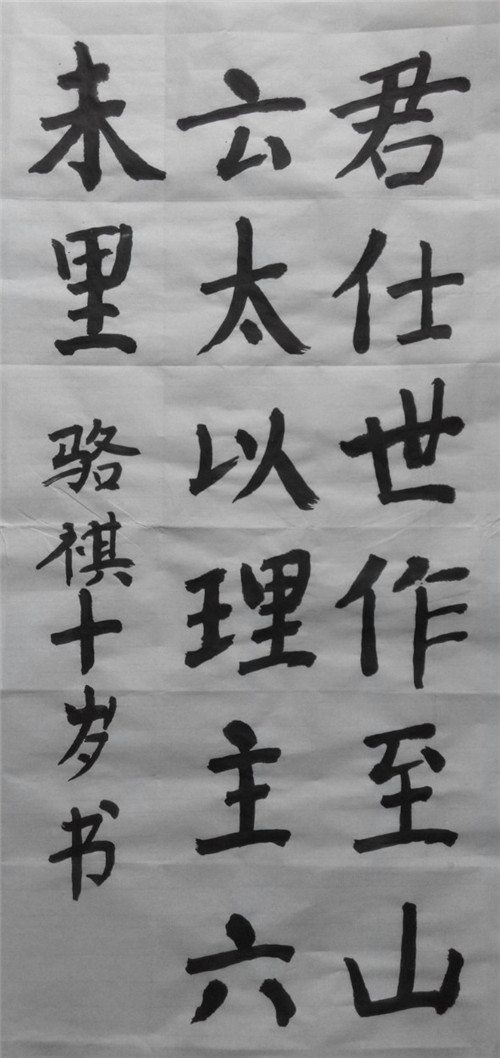 君仕世作至山
云太以理主六
未里
骆祺十岁书